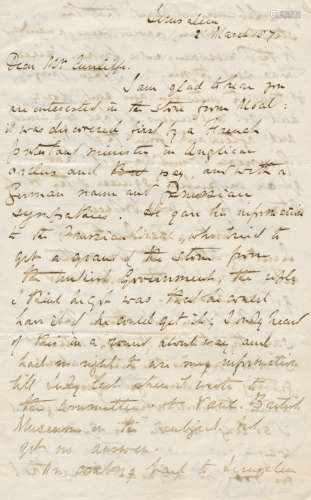 Jerusalem
2 March 187
Dear Mr Cunliffe.
I am glad to hear you
are interested in the stone from Moab:
it was discovered first by a French
protestant minister, in Anglican
orders and pay, and with a
German name and Prussian
sympathies. He gave his information
to the Prussian who tried to
get a grant of the stone from
the Turkish Government, the reply
was that he could
have it if he could get it; I only heard
of this in a round about way, and
had no right to use my information
till July last when I wrote to
the committee at British
Museum on the subject but
got no answer.
On coming back to Jerusalem